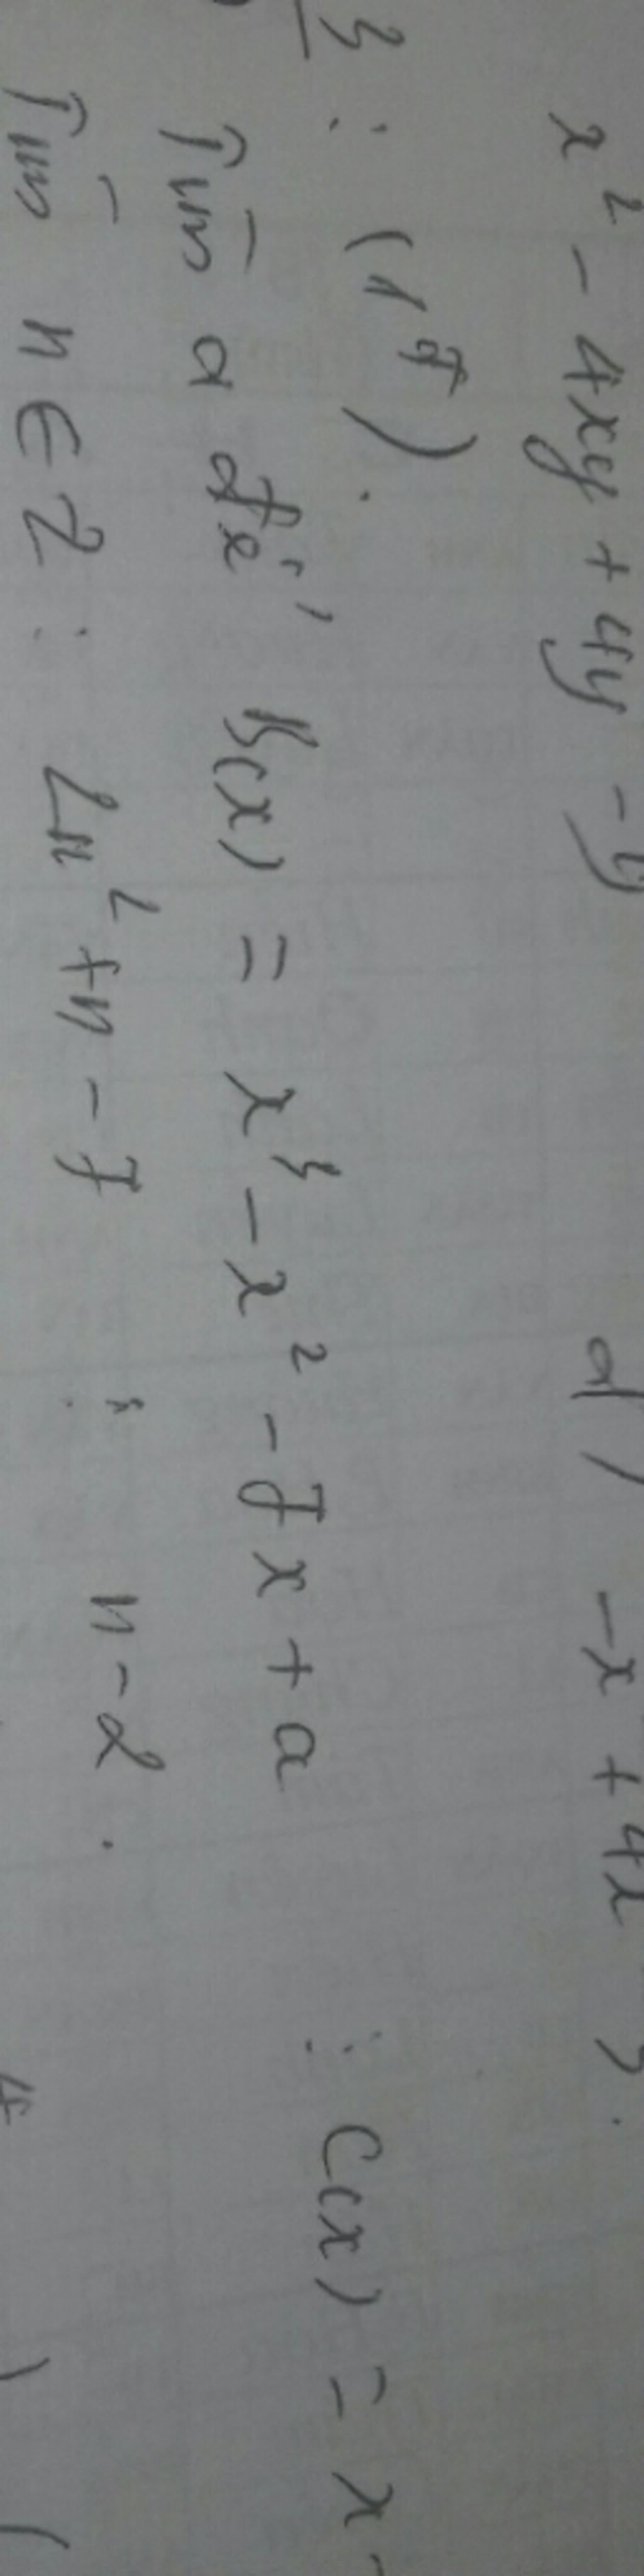 x² - 4xy + 4y - y d) -x + 4x
3 : (1đ).
Tìm a để B(x) = x³ - x² - 7x + a ⋮ C(x) = x -
Tìm n ∈ Z : 2n² + n - 7 ⋮ n - 2.